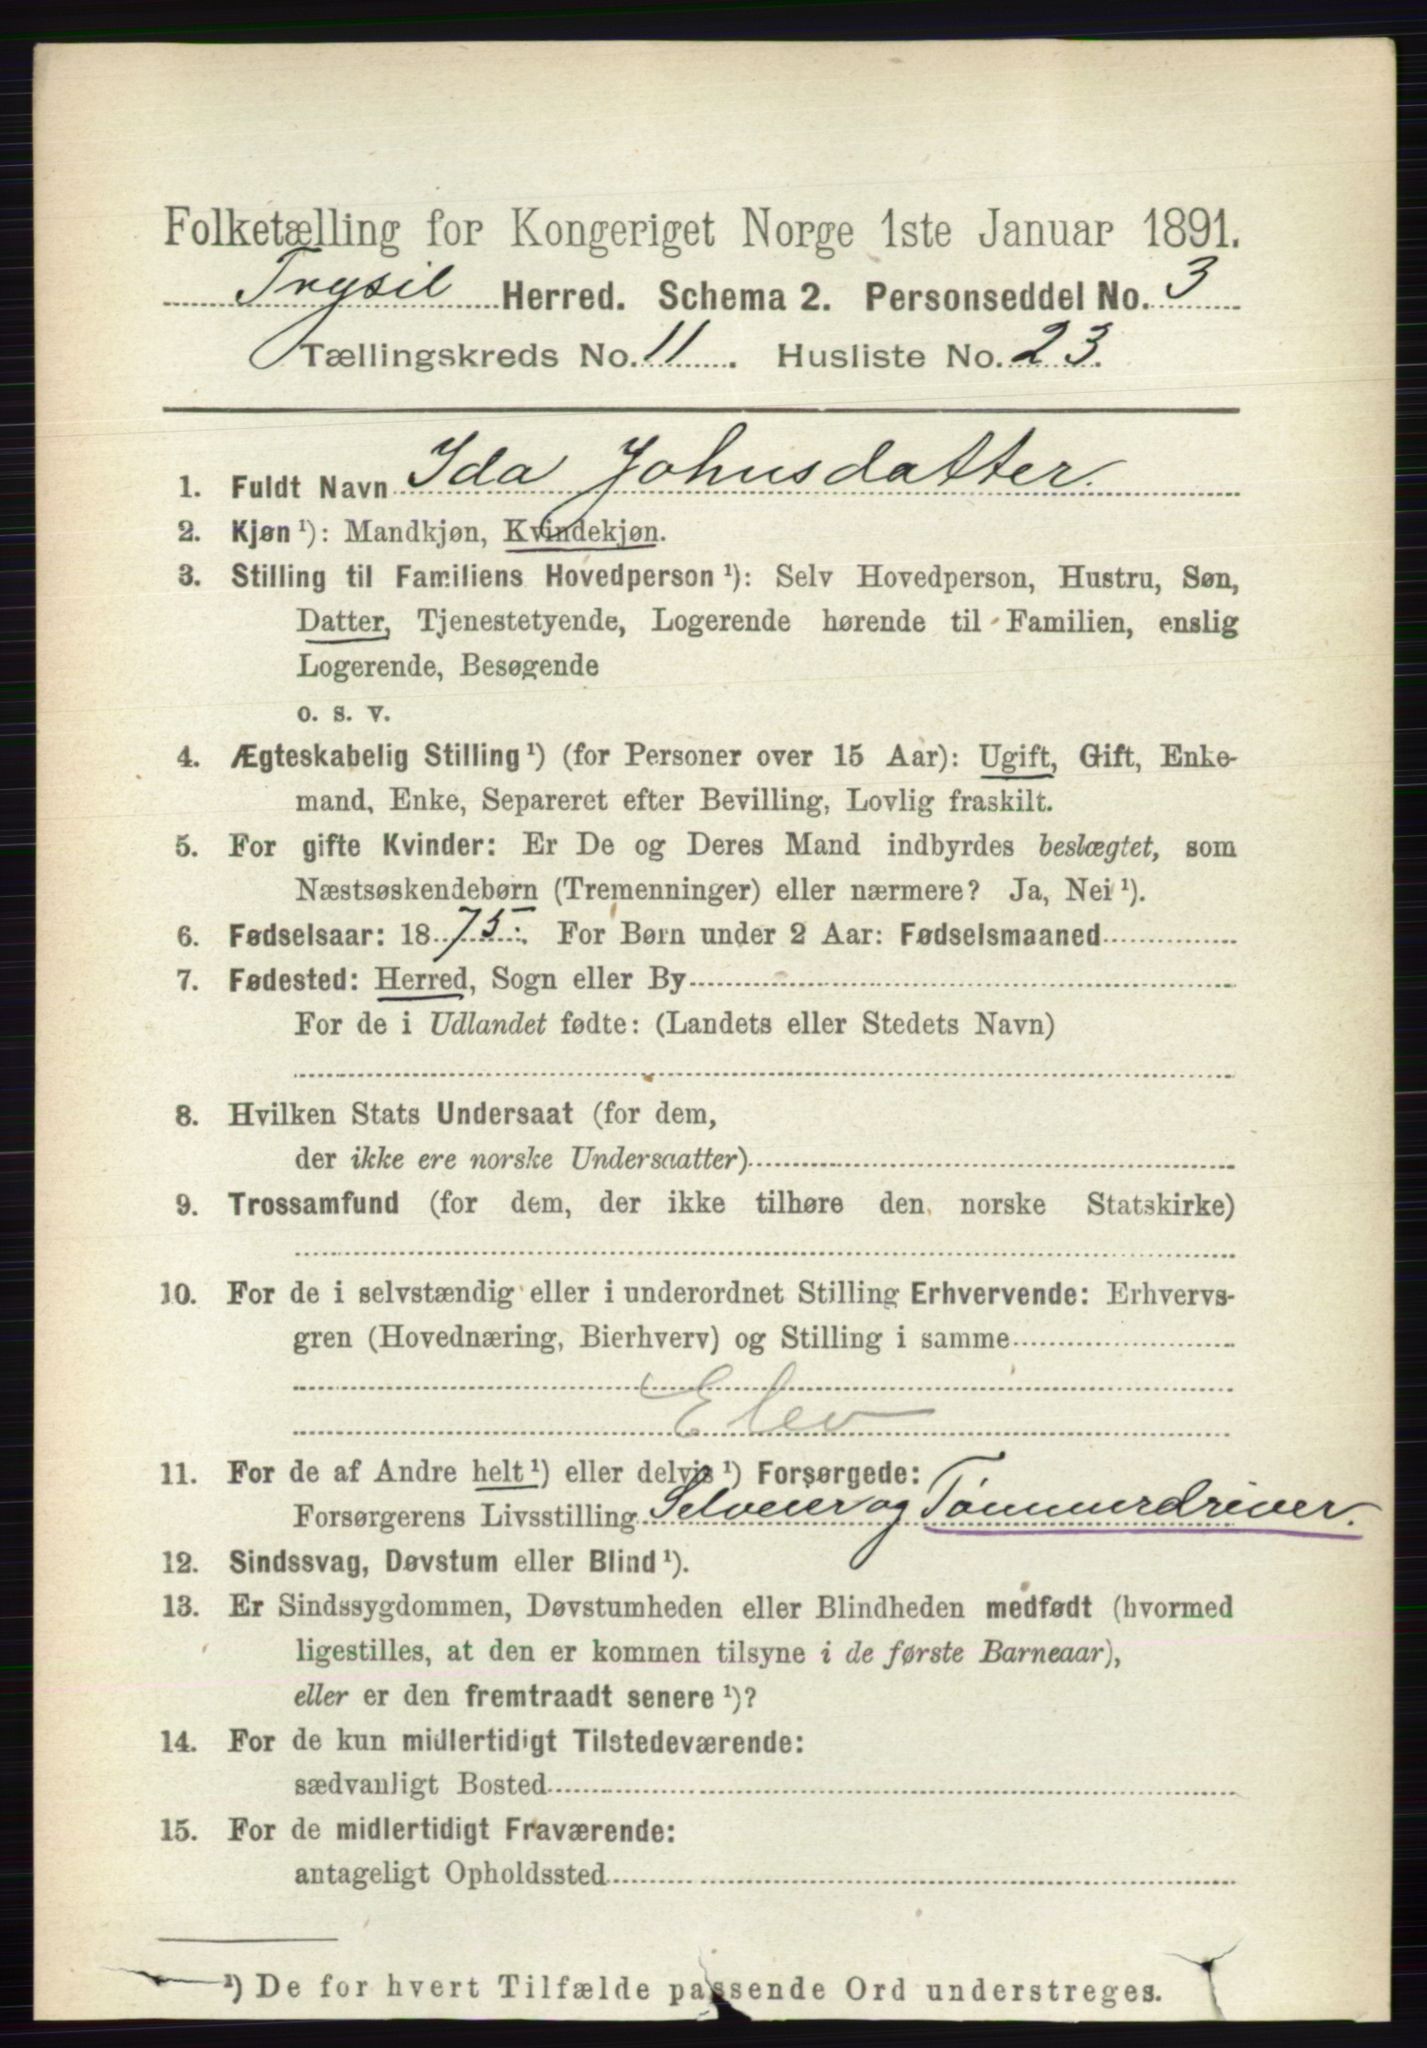 Folketælling for Kongeriget Norge 1ste Januar 1891.
Trysil Herred. Schema 2. Personseddel No. 3
Tællingskreds No. 11. Husliste No. 23.
1. Fuldt Navn Ida Johnsdatter.
2. Kjøn ¹): Mandkjøn, Kvindekjøn.
3. Stilling til Familiens Hovedperson ¹): Selv Hovedperson, Hustru, Søn,
Datter, Tjenestetyende, Logerende hørende til Familien, enslig
Logerende, Besøgende
o. s. v.
4. Ægteskabelig Stilling ¹) (for Personer over 15 Aar): Ugift, Gift, Enke-
mand, Enke, Separeret efter Bevilling, Lovlig fraskilt.
5. For gifte Kvinder: Er De og Deres Mand indbyrdes beslægtet, som
Næstsøskendebørn (Tremenninger) eller nærmere? Ja, Nei ¹).
6. Fødselsaar: 1875. For Børn under 2 Aar: Fødselsmaaned
7. Fødested: Herred, Sogn eller By
For de i Udlandet fødte: (Landets eller Stedets Navn)
8. Hvilken Stats Undersaat (for dem,
der ikke ere norske Undersaatter)
9. Trossamfund (for dem, der ikke tilhøre den norske Statskirke)
10. For de i selvstændig eller i underordnet Stilling Erhvervende: Erhvervs-
gren (Hovednæring, Bierhverv) og Stilling i samme
Elev
11. For de af Andre helt ¹) eller delvis ¹) Forsørgede:
Forsørgerens Livsstilling Selveier og Tømmerdriver.
12. Sindssvag, Døvstum eller Blind ¹).
13. Er Sindssygdommen, Døvstumheden eller Blindheden medfødt (hvormed
ligestilles, at den er kommen tilsyne i de første Barneaar),
eller er den fremtraadt senere ¹)?
14. For de kun midlertidigt Tilstedeværende:
sædvanligt Bosted
15. For de midlertidigt Fraværende:
antageligt Opholdssted
¹) De for hvert Tilfælde passende Ord understreges.